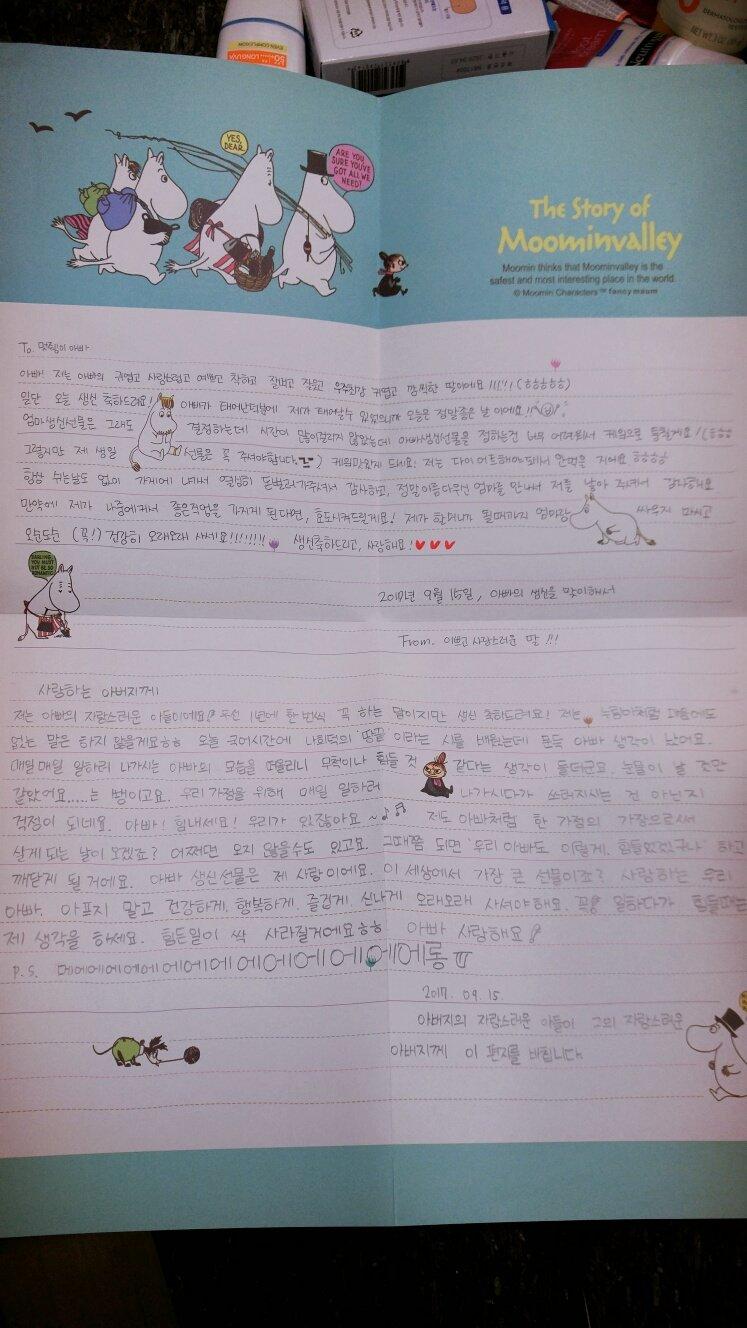 YES, DEAR.
ARE YOU SURE YOU'VE GOT ALL WE NEED?
The Story of
Moominvalley
Moomin thinks that Moominvalley is the
safest and most interesting place in the world.
© Moomin Characters™ fancy maum
To. 멋쟁이 아빠
아빠! 저는 아빠의 귀엽고 사랑스럽고 예쁘고 착하고 우주최강 귀엽고 깜찍한 딸이에요!!!!! (ㅎㅎㅎㅎㅎ)
일단 오늘 생신 축하드려요! 아빠가 태어난덕분에 제가 태어날수 있었으니까 오늘은 정말좋은 날 이에요!!
엄마생신선물은 그래도 결정하는데 시간이 많이걸리지 않았는데 아빠생신선물을 정하는건 너무 어려워서 케익으로 드릴게요!!
그렇지만 제 생일 선물은 꼭 주셔야합니다. 케익맛있게 드세요! 저는 다이어트해야돼서 안먹을 지어요 ㅎㅎㅎㅎ
항상 쉬는날도 없이 가게에 나가서 열심히 돈벌러가주셔서 감사하고, 정말아름다우신 엄마를 만나서 저를 낳아 주셔서 감사해요
만약에 제가 나중에커서 좋은직업을 가지게 된다면, 효도시켜드릴게요! 제가 할머니가 될때까지 엄마랑 싸우지 마시고
오순도순 (꼭!) 건강히 오래오래 사세요!!!!!!!! 생신축하드리고, 사랑해요! ♥♥♥
DARLING, YOU MUST NOT BE SO ROMANTIC
2017년 9월 15일, 아빠의 생신을 맞이해서
From. 이쁘고 사랑스러운 딸 !!!
사랑하는 아버지께
저는 아빠의 자랑스러운 아들이에요! 우선 1년에 한번씩 꼭 하는 말이지만 생신 축하드려요! 저는 누구처럼 마음에도
없는 말은 하지 않을게요ㅎㅎ 오늘 국어시간에 나희덕의 '땅끝' 이라는 시를 배웠는데 문득 아빠 생각이 났어요.
매일매일 일하러 나가시는 아빠의 모습을 떠올리니 무척이나 힘들 것 같다는 생각이 들더군요. 눈물이 날 것만
같았어요.....는 뻥이고요. 우리가정을 위해 매일 일하러 나가시다가 쓰러지시는 건 아닌지
걱정이 되네요. 아빠! 힘내세요! 우리가 있잖아요 ~♪♬ 저도 아빠처럼 한 가정의 가장으로서
살게되는 날이 오겠죠? 어쩌면 오지 않을수도 있고요. 그때쯤 되면 '우리 아빠도 이렇게 힘들었겠구나' 하고
깨닫게 될거에요. 아빠 생신선물은 제 사랑이에요. 이 세상에서 가장 큰 선물이죠? 사랑하는 우리
아빠. 아프지 말고 건강하게, 행복하게, 즐겁게, 신나게 오래오래 사셔야해요. 꼭! 일하다가 힘들때는
제 생각을 하세요. 힘든일이 싹 사라질거에요ㅎㅎ 아빠 사랑해요!
P.S. 메에에에에에에에에에에에에에에롱
2017. 09. 15.
아버지의 자랑스러운 아들이 그의 자랑스러운
아버지께 이 편지를 바칩니다.